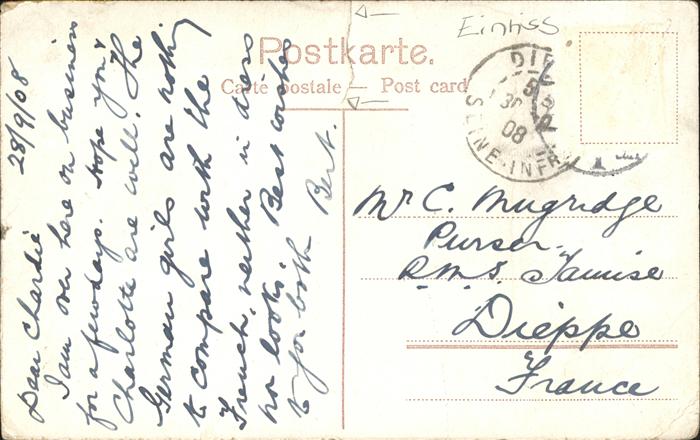 Einriss
Postkarte.
Carte postale — Post card
28/9/08
Dear Charlie
I am over here on business
for a few days. Hope you &
Charlotte are well. The
German girls are nothing
to compare with the
French, neither in dress
no looks. Best wishes
to you both Bert.
DIE
30
08
SEINE-INFRE
Mr C. Mugridge
Purser
R.M.S. Tamise
Dieppe
France